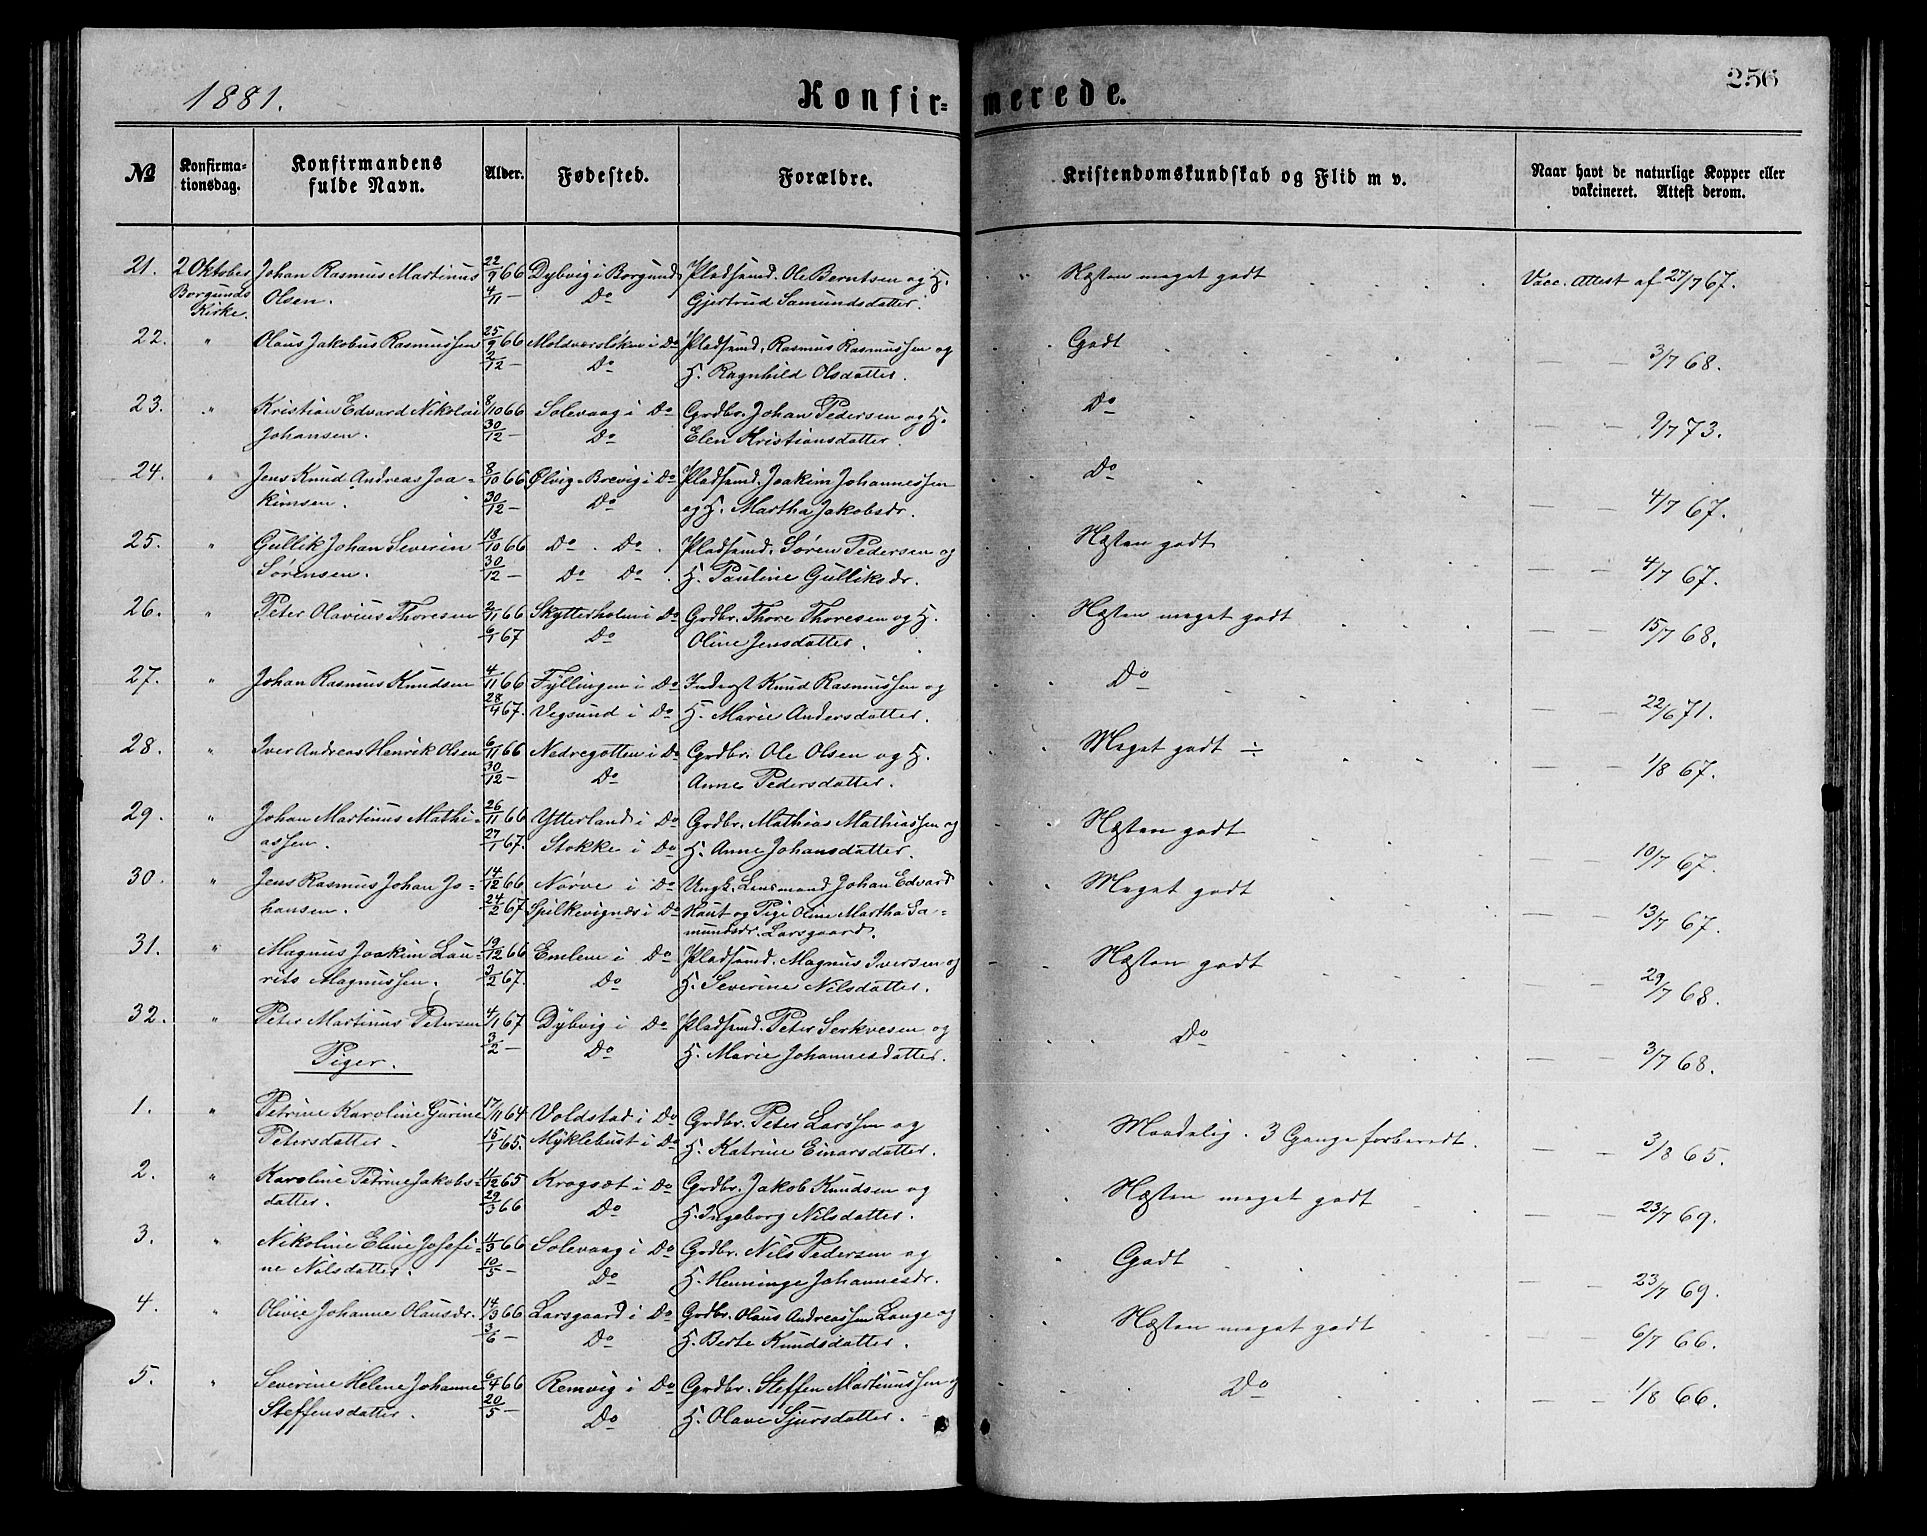 1881.
Konfir-
merede.
256
№
Konfirma-
tionsdag.
Konfirmandens
fulde Navn.
Alder.
Fødested.
Forældre.
Kristendomskundskab og Flid m v.
Naar havt de naturlige Kopper eller
vakcineret. Attest derom.
21. 2 Oktober Johan Rasmus Martinus 22/9 66 Dybvig i Borgund Pladsmd. Ole Berntsen og H. Næsten meget godt Vacc. Attest af 27/7 67.
Borgunds Olsen. 4/11 — Do Gjertrud Samundsdatter.
Kirke.
22. " Olaus Jakobus Rasmussen 25/9 66 Moldværsløken i Do Pladsmd. Rasmus Rasmussen og Godt — — 3/7 68.
2/12 — Do H. Ragnhild Olsdatter.
23. " Kristian Edvard Nikolai 8/10 66 Solevaag i Do Grdbr. Johan Pedersen og H. Do — — 9/7 73.
Johansen. 30/12 — Do Elen Kristiansdatter.
24. " Jens Knud Andreas Joa- 8/10 66 Ølvig-Brevig i Do Pladsmd. Joakim Johannessen Do — — 4/7 67.
kimsen. 30/12 — Do og H. Martha Jakobsdr.
25. " Gullik Johan Severin 18/10 66 Do. Do. Pladsmd. Søren Pedersen og Næsten godt — — 4/7 67.
Sørensen. 30/12 — Do Do. H. Pauline Gulliksdr.
26. " Peter Olavius Thoresen 2/11 66 Skytterholm i Do Grdbr. Thore Thoresen og H. Næsten meget godt — — 15/7 68.
6/1 67 Do Oline Jensdatter.
27. " Johan Rasmus Knudsen 4/11 66 Fyllingen i Do Inderst Knud Rasmussen og Do — — 22/6 71.
28/4 67. Vegsund i Do H. Marie Andersdatter.
28. " Iver Andreas Henrik Olsen 6/11 66 Nedregotten i Do Grdbr. Ole Olsen og H. Meget godt ÷ — — 1/8 67.
30/12 — Do Anne Pedersdatter.
29. " Johan Martinus Mathi- 26/11 66 Ytterland i Do Grdbr. Mathias Mathiassen og Næsten godt — — 10/7 67.
assen. 27/1 67. Stokke i Do H. Anne Johansdatter.
30. " Jens Rasmus Johan Jo- 14/12 66 Nørve i Do Ungk. Lensmand Johan Edvard Meget godt — — 13/7 67.
hansen. 24/2 67. Spilkevignæs i Do Raut og Pige Oline Martha Sa-
mundsdr. Larsgaard.
31. " Magnus Joakim Lau- 19/12 66 Emlem i Do Pladsmd. Magnus Iversen og Næsten godt — — 29/7 68.
rits Magnussen. 3/2 67. Do H. Severine Nilsdatter.
32. " Peter Martinus Petersen 4/1 67 Dybvig i Do Pladsmd. Peter Serkvesen og Do — — 3/7 68.
3/2 — Do H. Marie Johannesdatter.
Piger.
1. " Petrine Karoline Gurine 17/11 64 Voldstad i Do Grdbr. Peter Larssen og Maadelig. 3 Gange forberedt. — — 3/8 65.
Petersdatter. 15/1 65. Myklebust i Do H. Katrine Einarsdatter.
2. " Karoline Petrine Jakobs- 11/12 65 Krogsæt i Do Grdbr. Jakob Knudsen og Næsten meget godt — — 23/7 69.
datter. 29/3 66 Do H. Ingeborg Nilsdatter.
3. " Nikoline Eline Josefi- 11/3 66 Solevaag i Do Grdbr. Nils Pedersen og Godt — — 23/7 69.
ne Nilsdatter. 10/5 — Do H. Henninge Johannesdr.
4. " Olivie Johanne Olausdr. 14/3 66 Larsgaard i Do Grdbr. Olaus Andreassen Lange og Næsten meget godt — — 6/7 66.
3/6 — Do H. Berte Knudsdatter.
5. " Severine Helene Johanne 6/4 66 Remvig i Do Grdbr. Steffen Martinussen og Do — — 1/8 66.
Steffensdatter. 20/5 — Do H. Olave Sjursdatter.